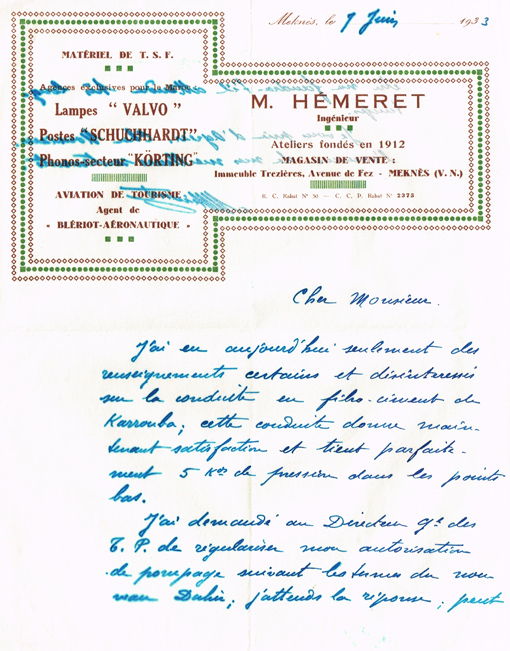 Meknès, le 7 Juin 1933
MATÉRIEL DE T. S. F.
Agences exclusives pour le Maroc :
Lampes “ VALVO ”
Postes “SCHUCHHARDT”
Phonos-secteur “KÖRTING”
AVIATION DE TOURISME
Agent de
« BLÉRIOT-AÉRONAUTIQUE »
M. HÉMERET
Ingénieur
Ateliers fondés en 1912
MAGASIN DE VENTE :
Immeuble Trezières, Avenue de Fez - MEKNÈS (V. N.)
R. C. Rabat Nº 50 — C. C. P. Rabat Nº 2375
Cher Monsieur.
J'ai eu aujourd'hui seulement des
renseignements certains et désintéressés
sur la conduite en fibro-ciment de
Karrouba; cette conduite donne main-
tenant satisfaction et tient parfaite-
ment 5 Kos de pression dans les points
bas.
J'ai demandé au Directeur gal des
T. P. de régulariser mon autorisation
de pompage suivant les termes du nou
veau Dahir; j'attends la réponse; peut